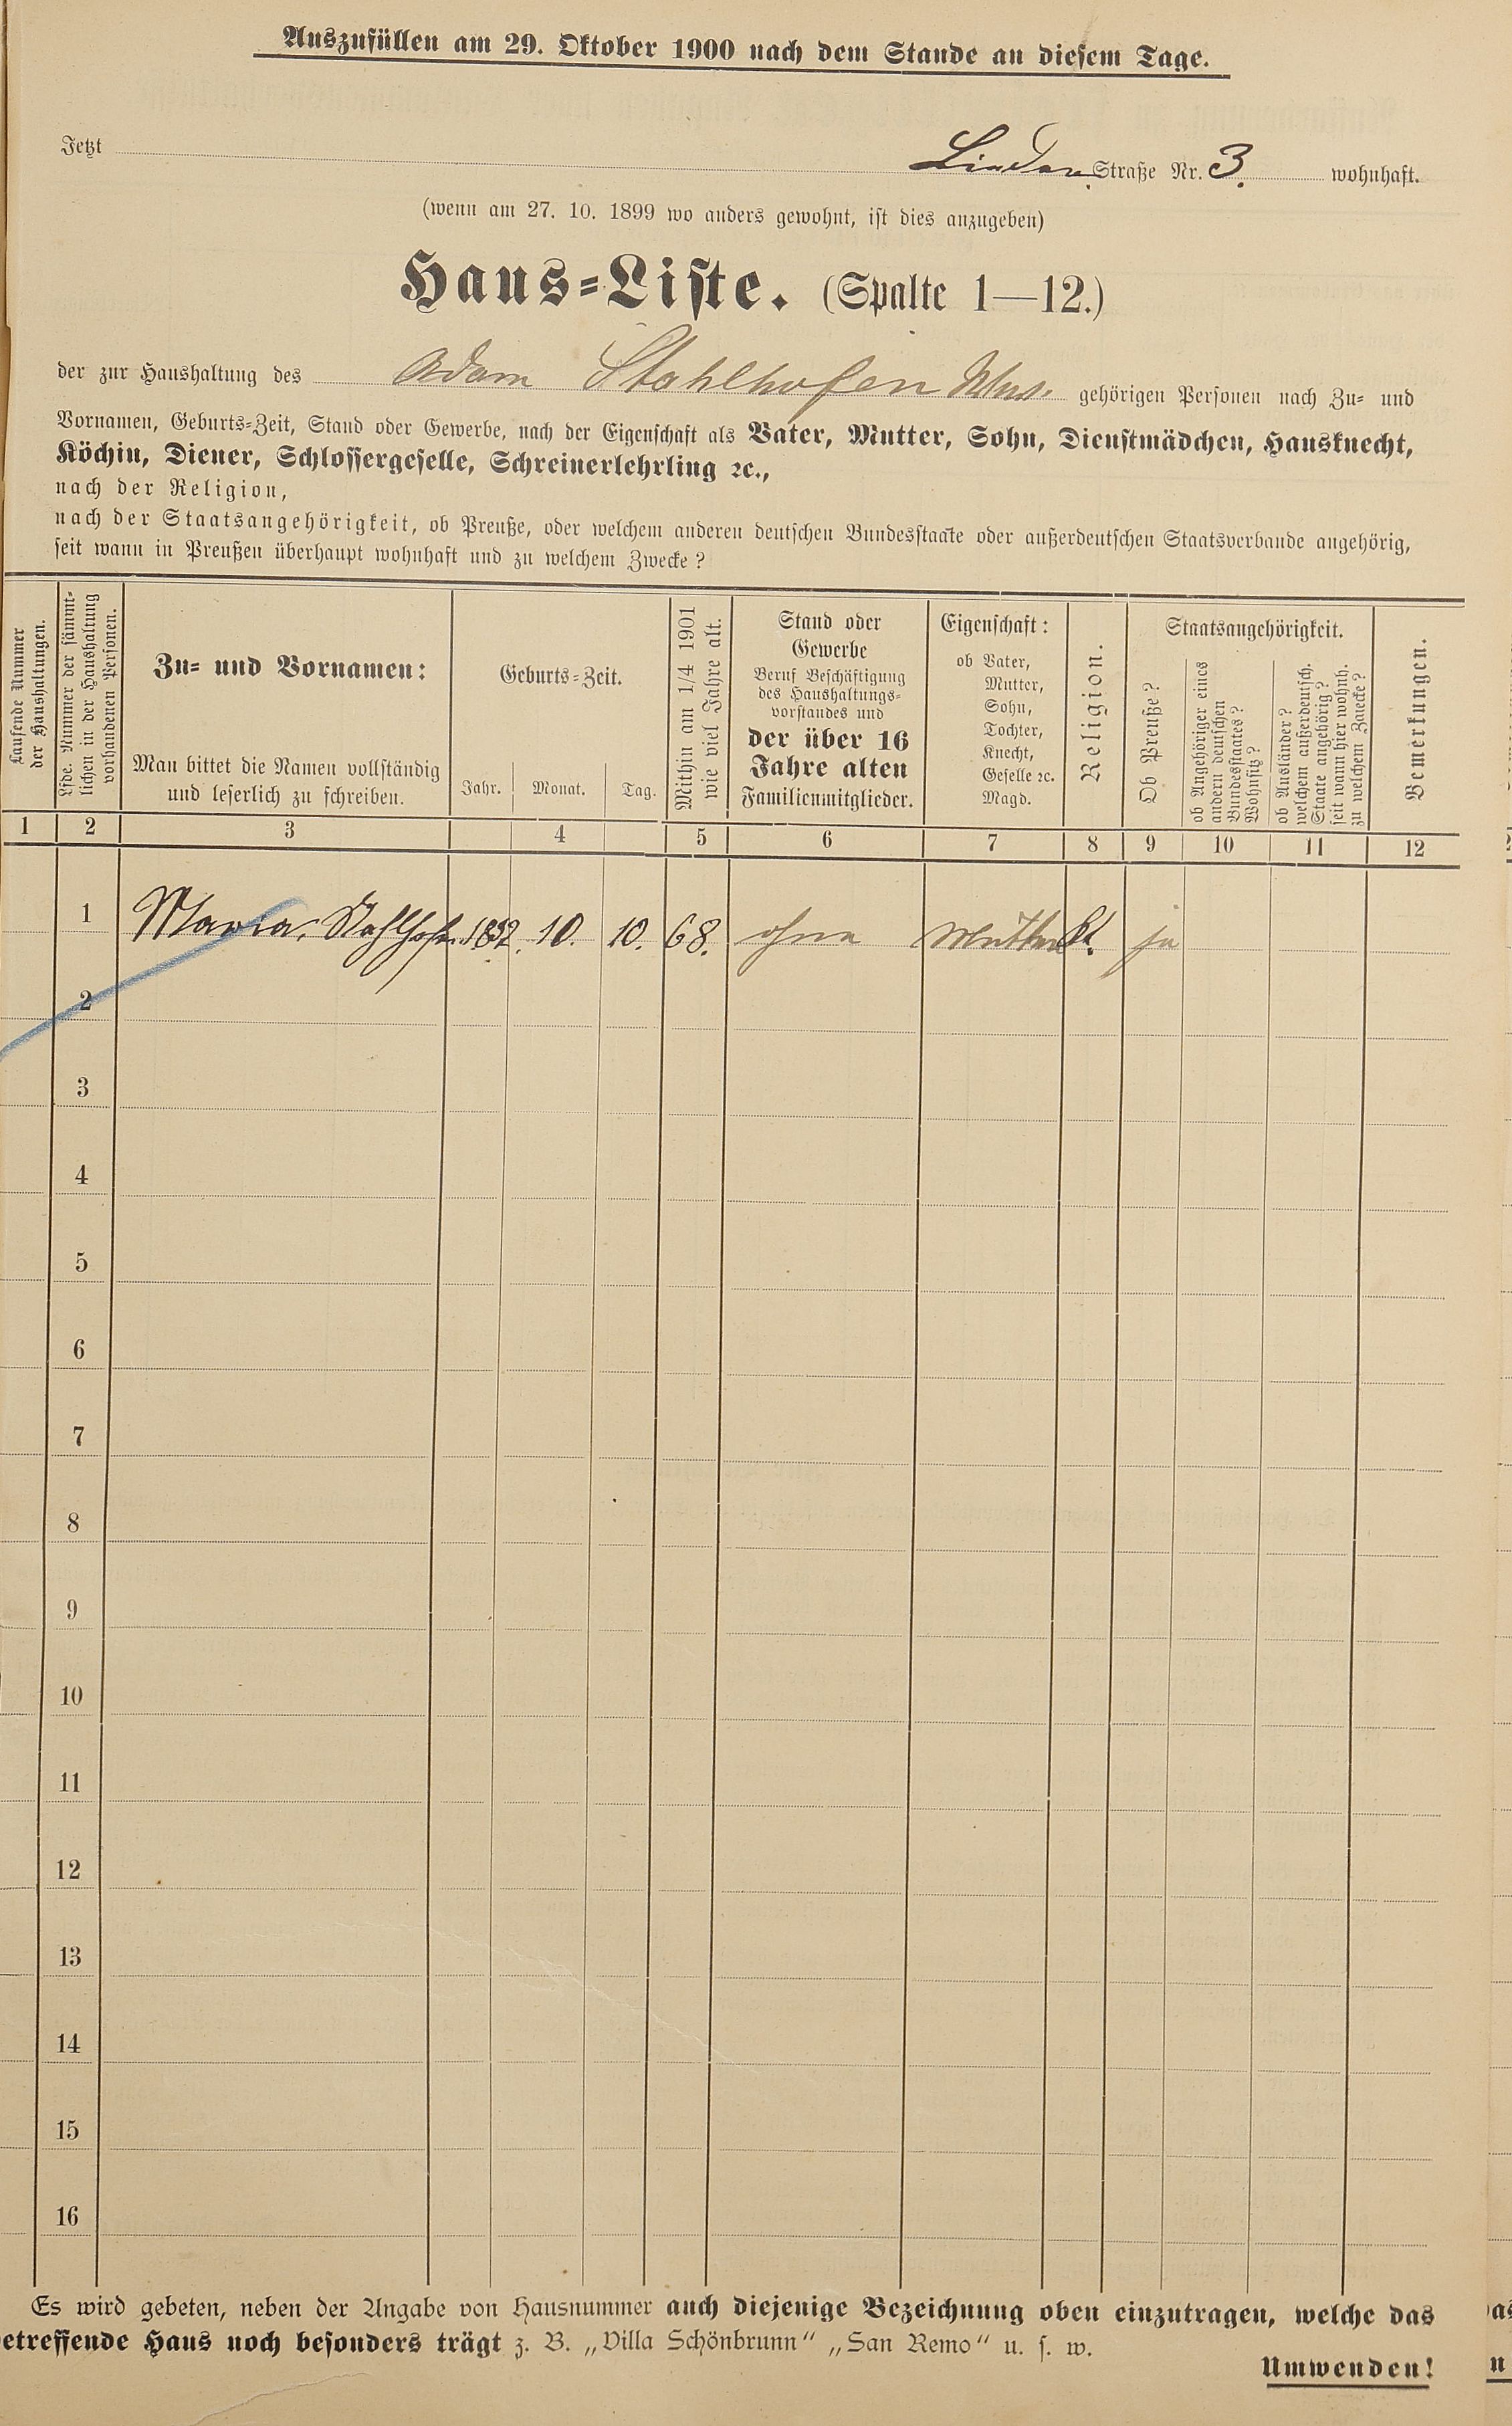 Auszufüllen am 29. Oktober 1900 nach dem Stande an diesem Tage.
Jetzt Linden Straße Nr. 3. wohnhaft.
(wenn am 27. 10. 1899 wo anders gewohnt, ist dies anzugeben)
Haus-Liste. (Spalte 1—12.)
der zur Haushaltung des Adam Stahlhofen gehörigen Personen nach Zu- und
Vornamen, Geburts-Zeit, Stand oder Gewerbe, nach der Eigenschaft als Vater, Mutter, Sohn, Dienstmädchen, Hausknecht,
Köchin, Diener, Schlossergeselle, Schreinerlehrling ꝛc.,
nach der Religion,
nach der Staatsangehörigkeit, ob Preuße, oder welchem anderen deutschen Bundesstaate oder außerdeutschen Staatsverbande angehörig,
seit wann in Preußen überhaupt wohnhaft und zu welchem Zwecke?
Laufende Nummer
der Haushaltungen.
Lfde. Nummer der sämmt-
lichen in der Haushaltung
vorhandenen Personen.
Zu- und Vornamen:
Man bittet die Namen vollständig
und leserlich zu schreiben.
Geburts-Zeit.
Jahr. Monat. Tag.
Mithin am 1/4 1901
wie viel Jahre alt.
Stand oder
Gewerbe
Beruf Beschäftigung
des Haushaltungs-
vorstandes und
der über 16
Jahre alten
Familienmitglieder.
Eigenschaft:
ob Vater,
Mutter,
Sohn,
Tochter,
Knecht,
Geselle ꝛc.
Magd.
Religion.
Staatsangehörigkeit.
Ob Preuße?
ob Angehöriger eines
andern deutschen
Bundesstaates?
Wohnsitz?
ob Ausländer?
welchem außerdeutsch.
Staate angehörig?
seit wann hier wohnh.
zu welchem Zwecke?
Bemerkungen.
1 2 3 4 5 6 7 8 9 10 11 12
1 Maria Stahlhofen 1832. 10. 10. 68. ohne Mutter kt. ja
2
3
4
5
6
7
8
9
10
11
12
13
14
15
16
Es wird gebeten, neben der Angabe von Hausnummer auch diejenige Bezeichnung oben einzutragen, welche das
etreffende Haus noch besonders trägt z. B. „Villa Schönbrunn“ „San Remo“ u. s. w.
Umwenden!